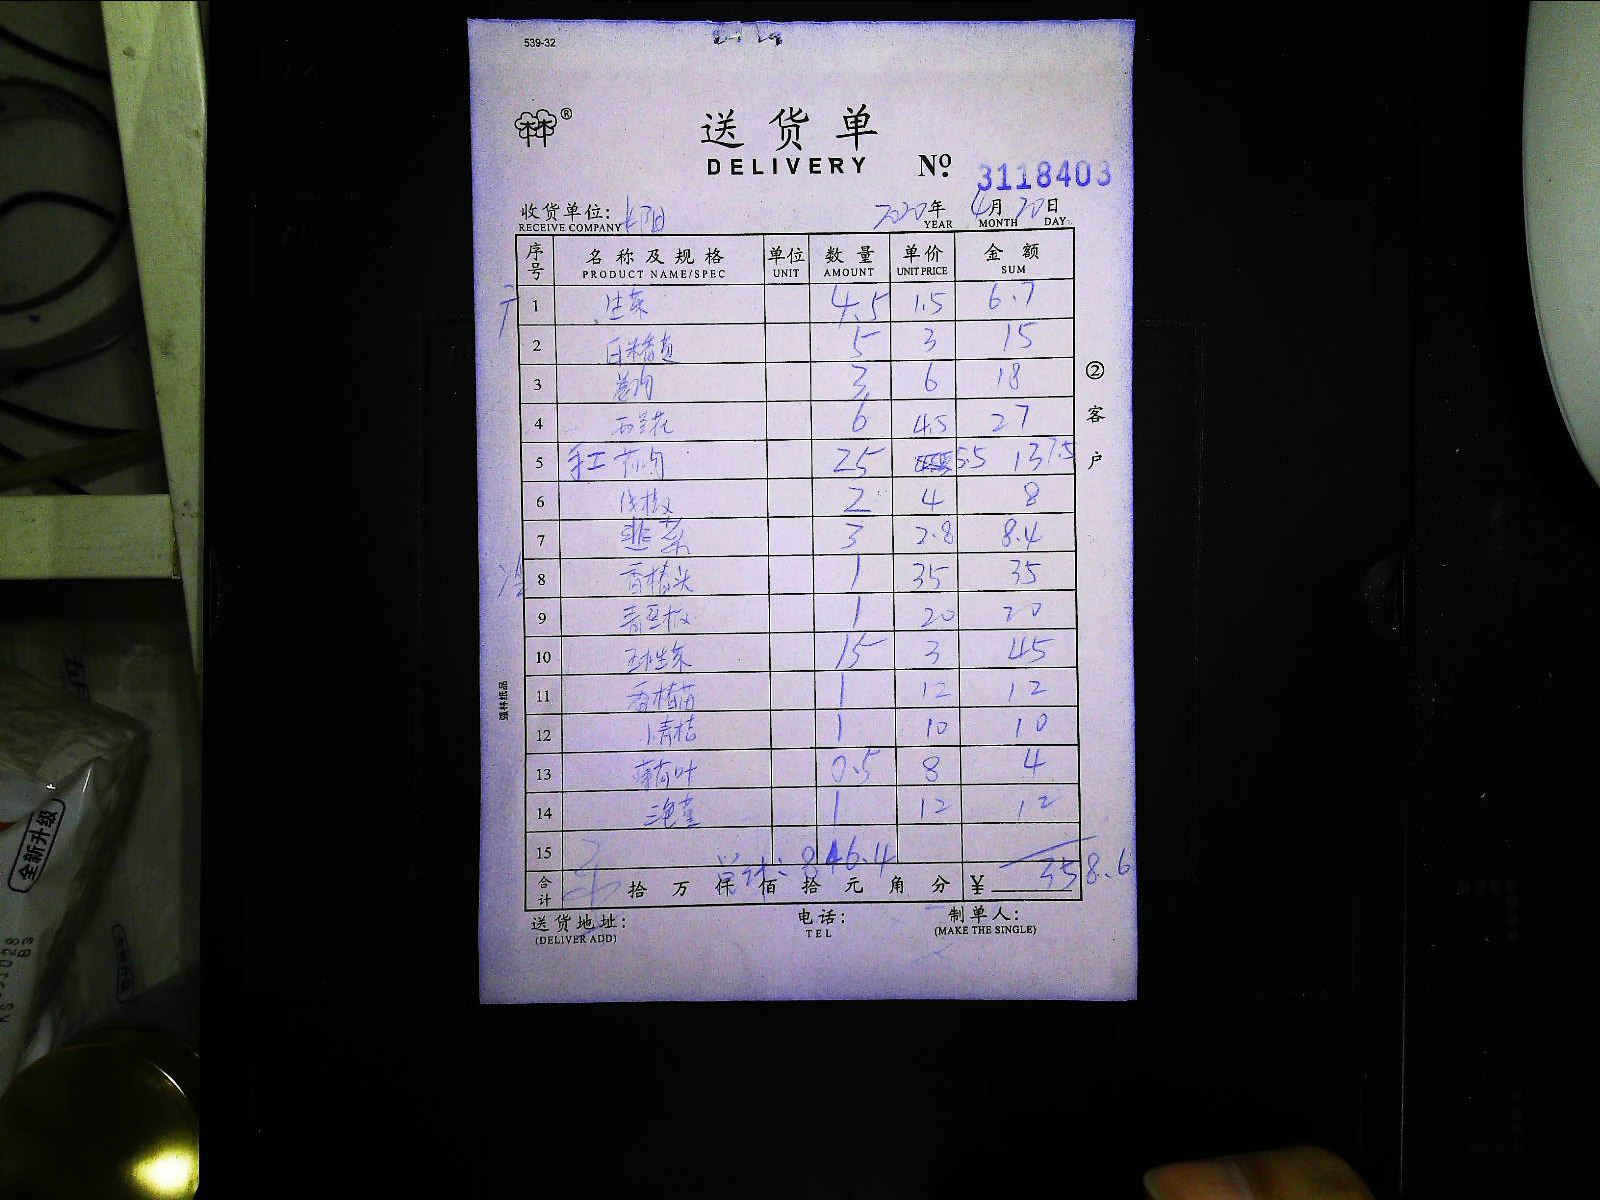 539-32
林®
送货单
DELIVERY No. 3118403
收货单位: 2020年 4月 20日
RECEIVE COMPANY YEAR MONTH DAY
序号 名称及规格 单位 数量 单价 金额
PRODUCT NAME/SPEC UNIT AMOUNT UNIT PRICE SUM
1 生菜 4.5 1.5 6.7
2 5 3 15
3 3 6 18
4 西兰花 6 4.5 27
5 手工 25 5.5 137.5
6 线椒 2 4 8
7 韭菜 3 2.8 8.4
8 香椿头 1 35 35
9 1 20 20
10 15 3 45
11 香椿苗 1 12 12
12 小青桔 1 10 10
13 薄荷叶 0.5 8 4
14 三色堇 1 12 12
15 总计: 846.4
合计 拾 万 仟 佰 拾 元 角 分 ¥ 358.6
送货地址: 电话: 制单人:
(DELIVER ADD) TEL (MAKE THE SINGLE)
②客户
强林纸品
全新升级